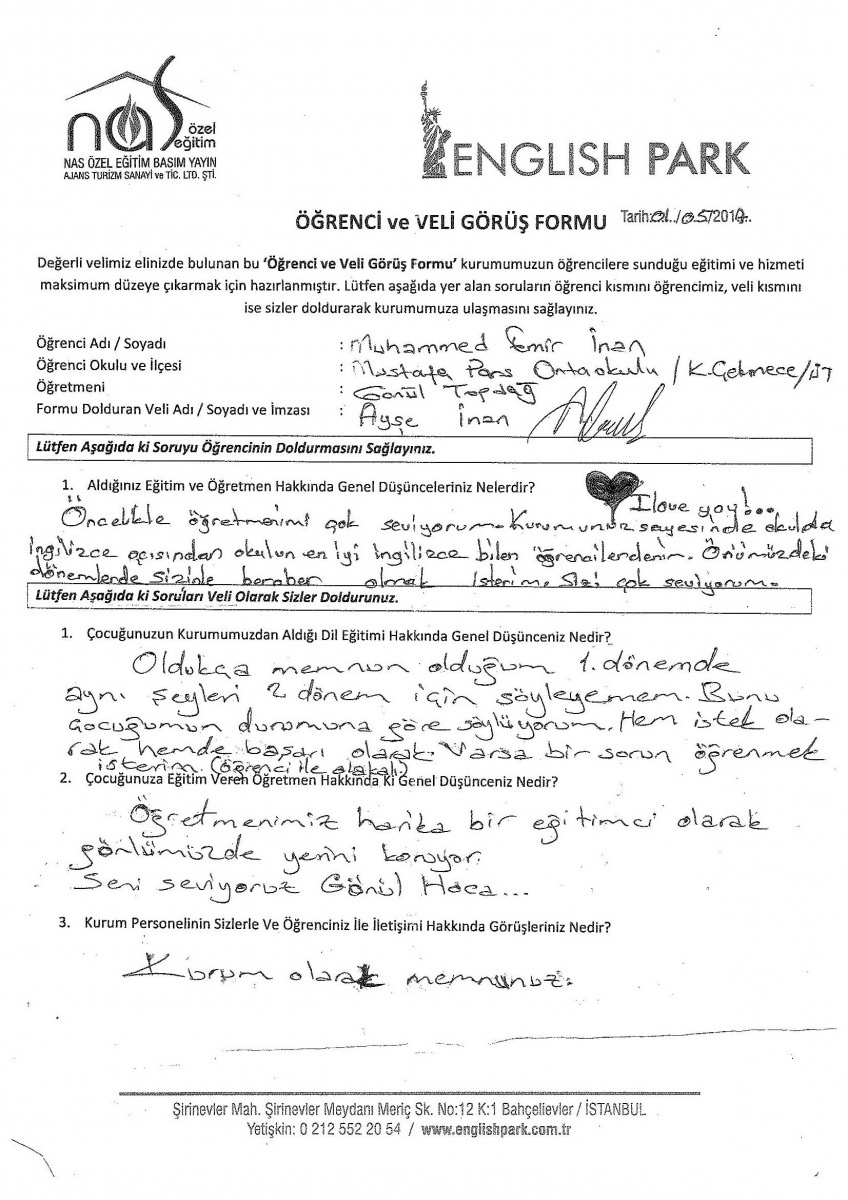 nas özel
eğitim
NAS ÖZEL EĞİTİM BASIM YAYIN
AJANS TURİZM SANAYİ ve TİC. LTD. ŞTİ.
ENGLISH PARK
ÖĞRENCİ ve VELİ GÖRÜŞ FORMU Tarih:01./05/2014.
Değerli velimiz elinizde bulunan bu ‘Öğrenci ve Veli Görüş Formu’ kurumumuzun öğrencilere sunduğu eğitimi ve hizmeti
maksimum düzeye çıkarmak için hazırlanmıştır. Lütfen aşağıda yer alan soruların öğrenci kısmını öğrencimiz, veli kısmını
ise sizler doldurarak kurumumuza ulaşmasını sağlayınız.
Öğrenci Adı / Soyadı : Muhammed Emir İnan
Öğrenci Okulu ve İlçesi : Mustafa Pars Ortaokulu / K.Çekmece/İST
Öğretmeni : Gönül Topdağ
Formu Dolduran Veli Adı / Soyadı ve İmzası : Ayşe İnan
Lütfen Aşağıda ki Soruyu Öğrencinin Doldurmasını Sağlayınız.
1. Aldığınız Eğitim ve Öğretmen Hakkında Genel Düşünceleriniz Nelerdir?
I love you!...
Öncelikle öğretmenimi çok seviyorum. Kurumunuz sayesinde okulda
ingilizce açısından okulun en iyi ingilizce bilen öğrencilerdenim. Önümüzdeki
dönemlerde sizinle beraber olmak isterim. Sizi çok seviyorum.
Lütfen Aşağıda ki Soruları Veli Olarak Sizler Doldurunuz.
1. Çocuğunuzun Kurumumuzdan Aldığı Dil Eğitimi Hakkında Genel Düşünceniz Nedir?
Oldukça memnun olduğum 1. dönemde
aynı şeyleri 2 dönem için söyleyemem. Bunu
çocuğumun durumuna göre söylüyorum. Hem istek ola-
rak hemde başarı olarak. Varsa bir sorun öğrenmek
isterim. (Öğrenci ile alakalı)
2. Çocuğunuza Eğitim Veren Öğretmen Hakkında Ki Genel Düşünceniz Nedir?
Öğretmenimiz harika bir eğitimci olarak
gönlümüzde yerini koruyor.
Seni seviyoruz Gönül Hoca...
3. Kurum Personelinin Sizlerle Ve Öğrenciniz İle İletişimi Hakkında Görüşleriniz Nedir?
Kurum olarak memnunuz.
Şirinevler Mah. Şirinevler Meydanı Meriç Sk. No:12 K:1 Bahçelievler / İSTANBUL
Yetişkin: 0 212 552 20 54 / www.englishpark.com.tr